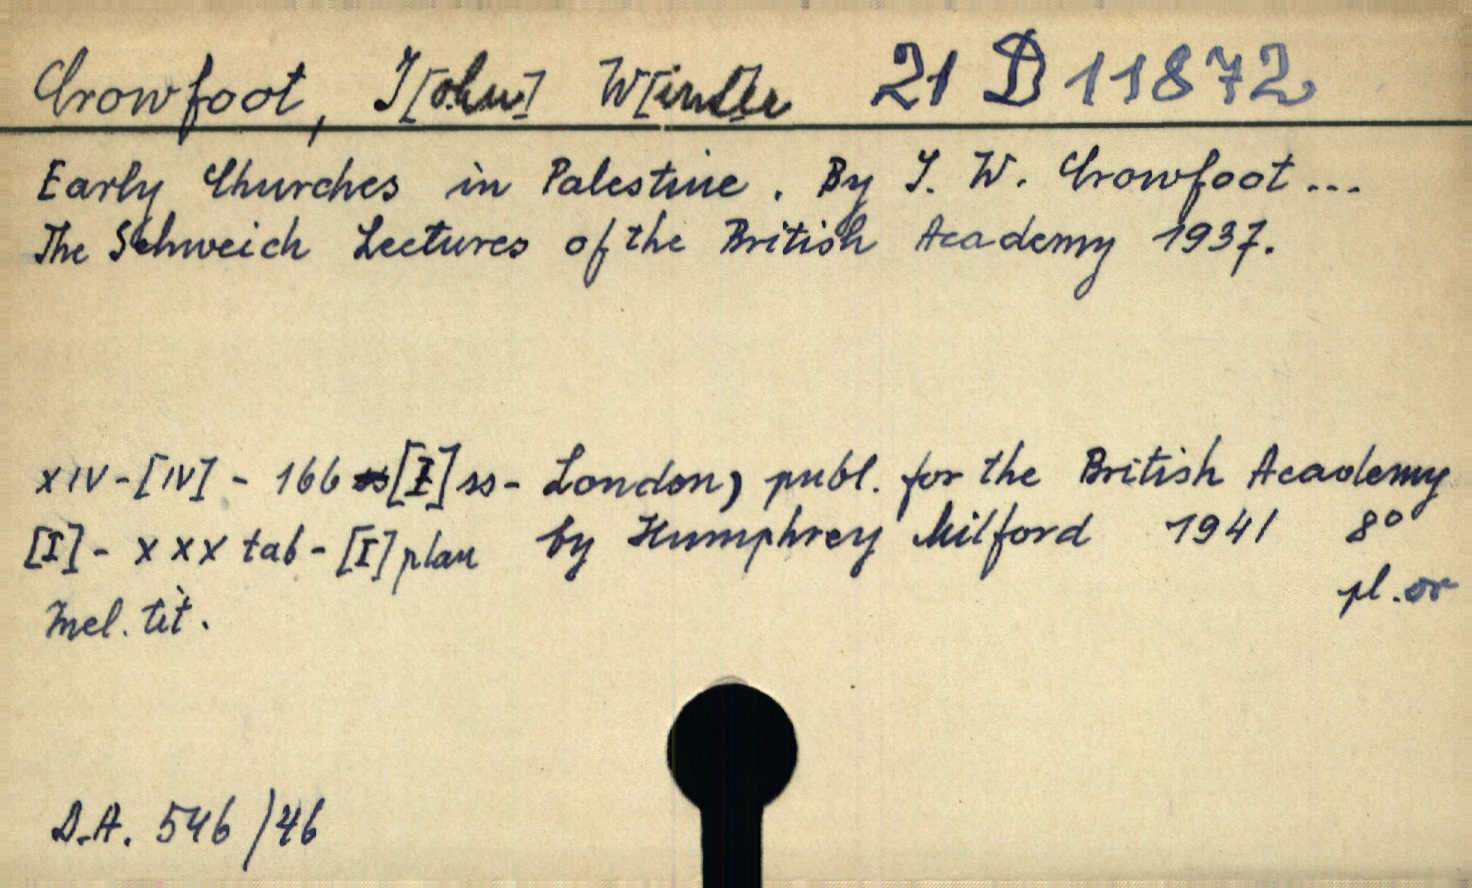 Crowfoot, J[ohn] W[inter 21 D 11872
Early Churches in Palestine. By J. W. Crowfoot...
The Schweich Lectures of the British Academy 1937.
XIV-[IV] - 166 [I] ss- London, publ. for the British Academy
[I] - XXX tab - [I] plan by Humphrey Milford 1941 8°
pl. or
mel. tit.
D.A. 546/46